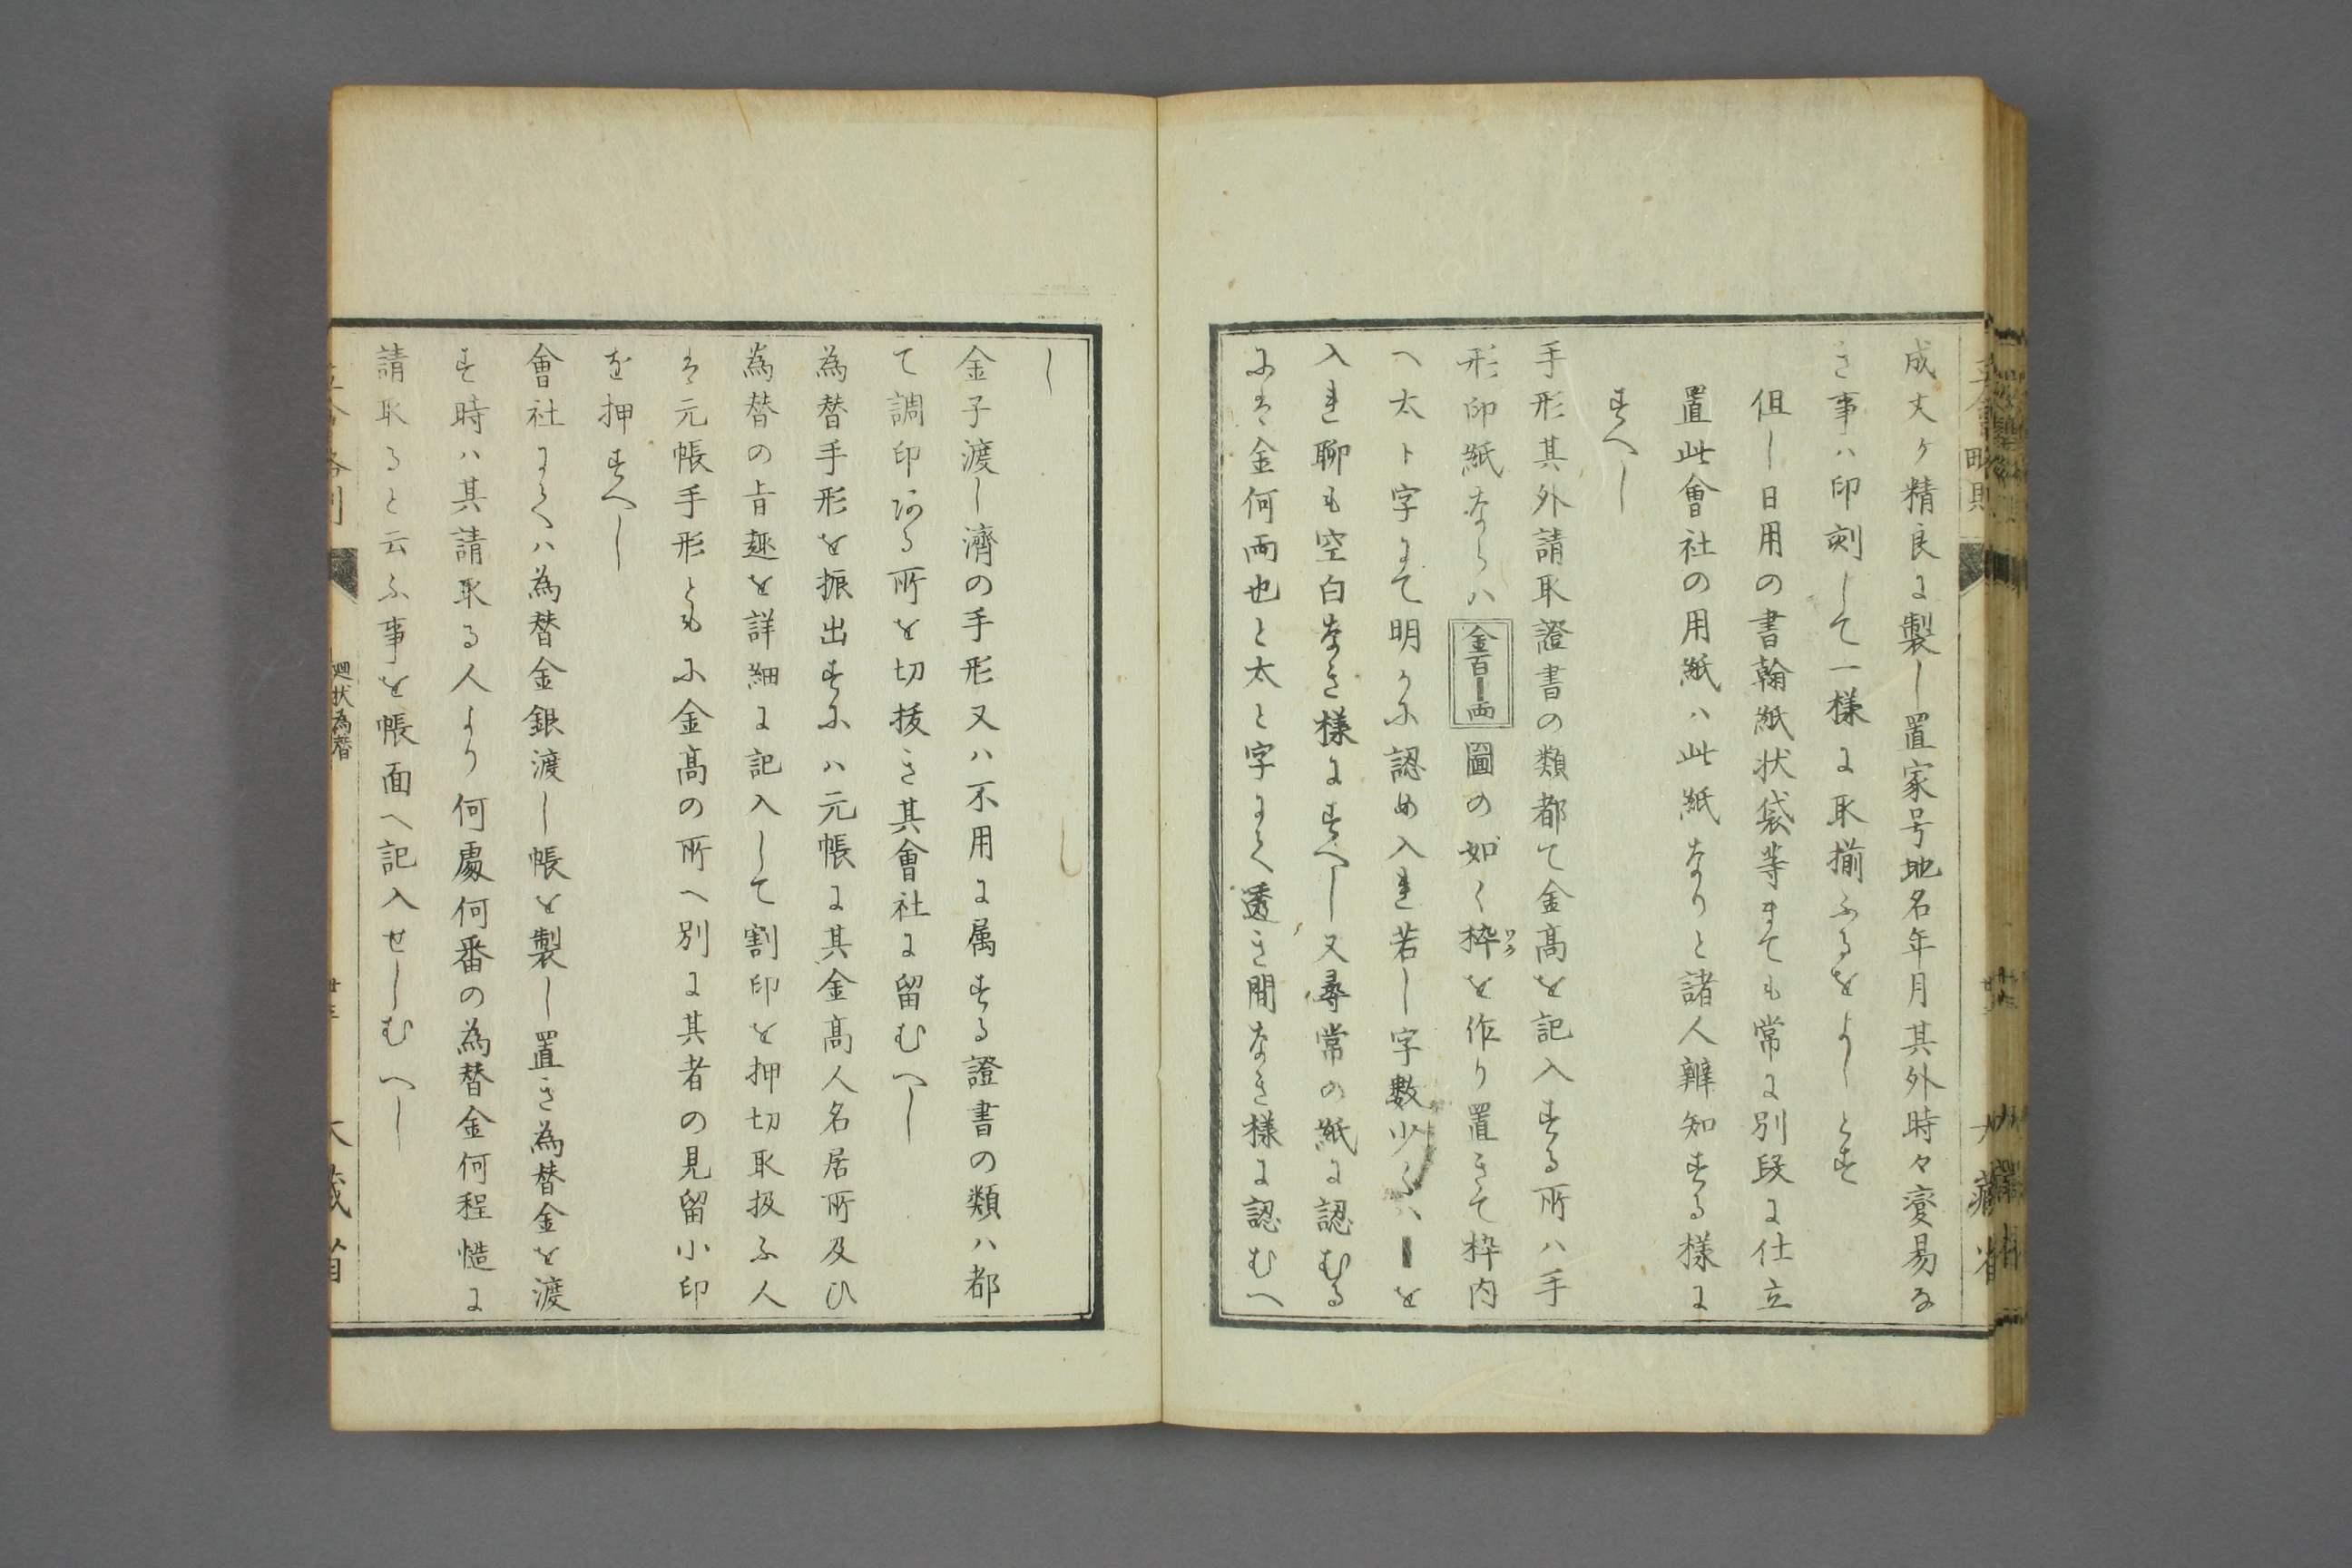 成丈ヶ精良に製し置家号地名年月其外時々變易な
き事ハ印刻して一様に取揃ふるをよしとす
但し日用の書翰紙状袋等まても常に別段に仕立
置此會社の用紙ハ此紙なりと諸人辨知する様に
すへし
手形其外請取證書の類都て金高を記入する所ハ手
形印紙ならハ金百ー両圖の如く枠を作り置きて枠内
へ太ト字にて明かに認め入れ若し字數少くハーを
入れ聊も空白なき様にすへし又尋常の紙に認むる
にハ金何両也と太と字にて透き間なき様に認むへ
し
金子渡し濟の手形又ハ不用に属する證書の類ハ都
て調印ある所を切抜き其會社に留むへし
為替手形を振出すにハ元帳に其金高人名居所及ひ
為替の旨趣を詳細に記入して割印を押切取扱ふ人
は元帳手形ともに金高の所へ別に其者の見留小印
を押すへし
會社にてハ為替金銀渡し帳を製し置き為替金を渡
す時ハ其請取る人より何處何番の為替金何程慥に
請取ると云ふ事を帳面へ記入せしむへし
廻状為替
大藏省